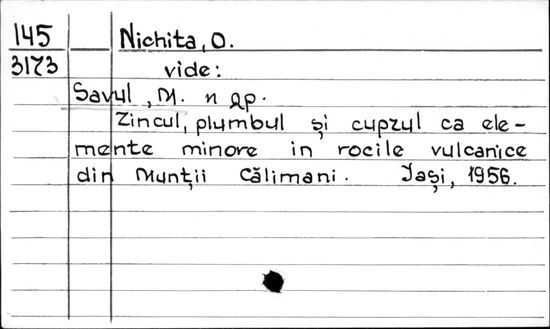 145 Nichita, O.
3173 vide:
Savul, M. n др.
Zincul, plumbul și cuprul ca ele-
mente minore in rocile vulcanice
din Munții Călimani. Iași, 1956.